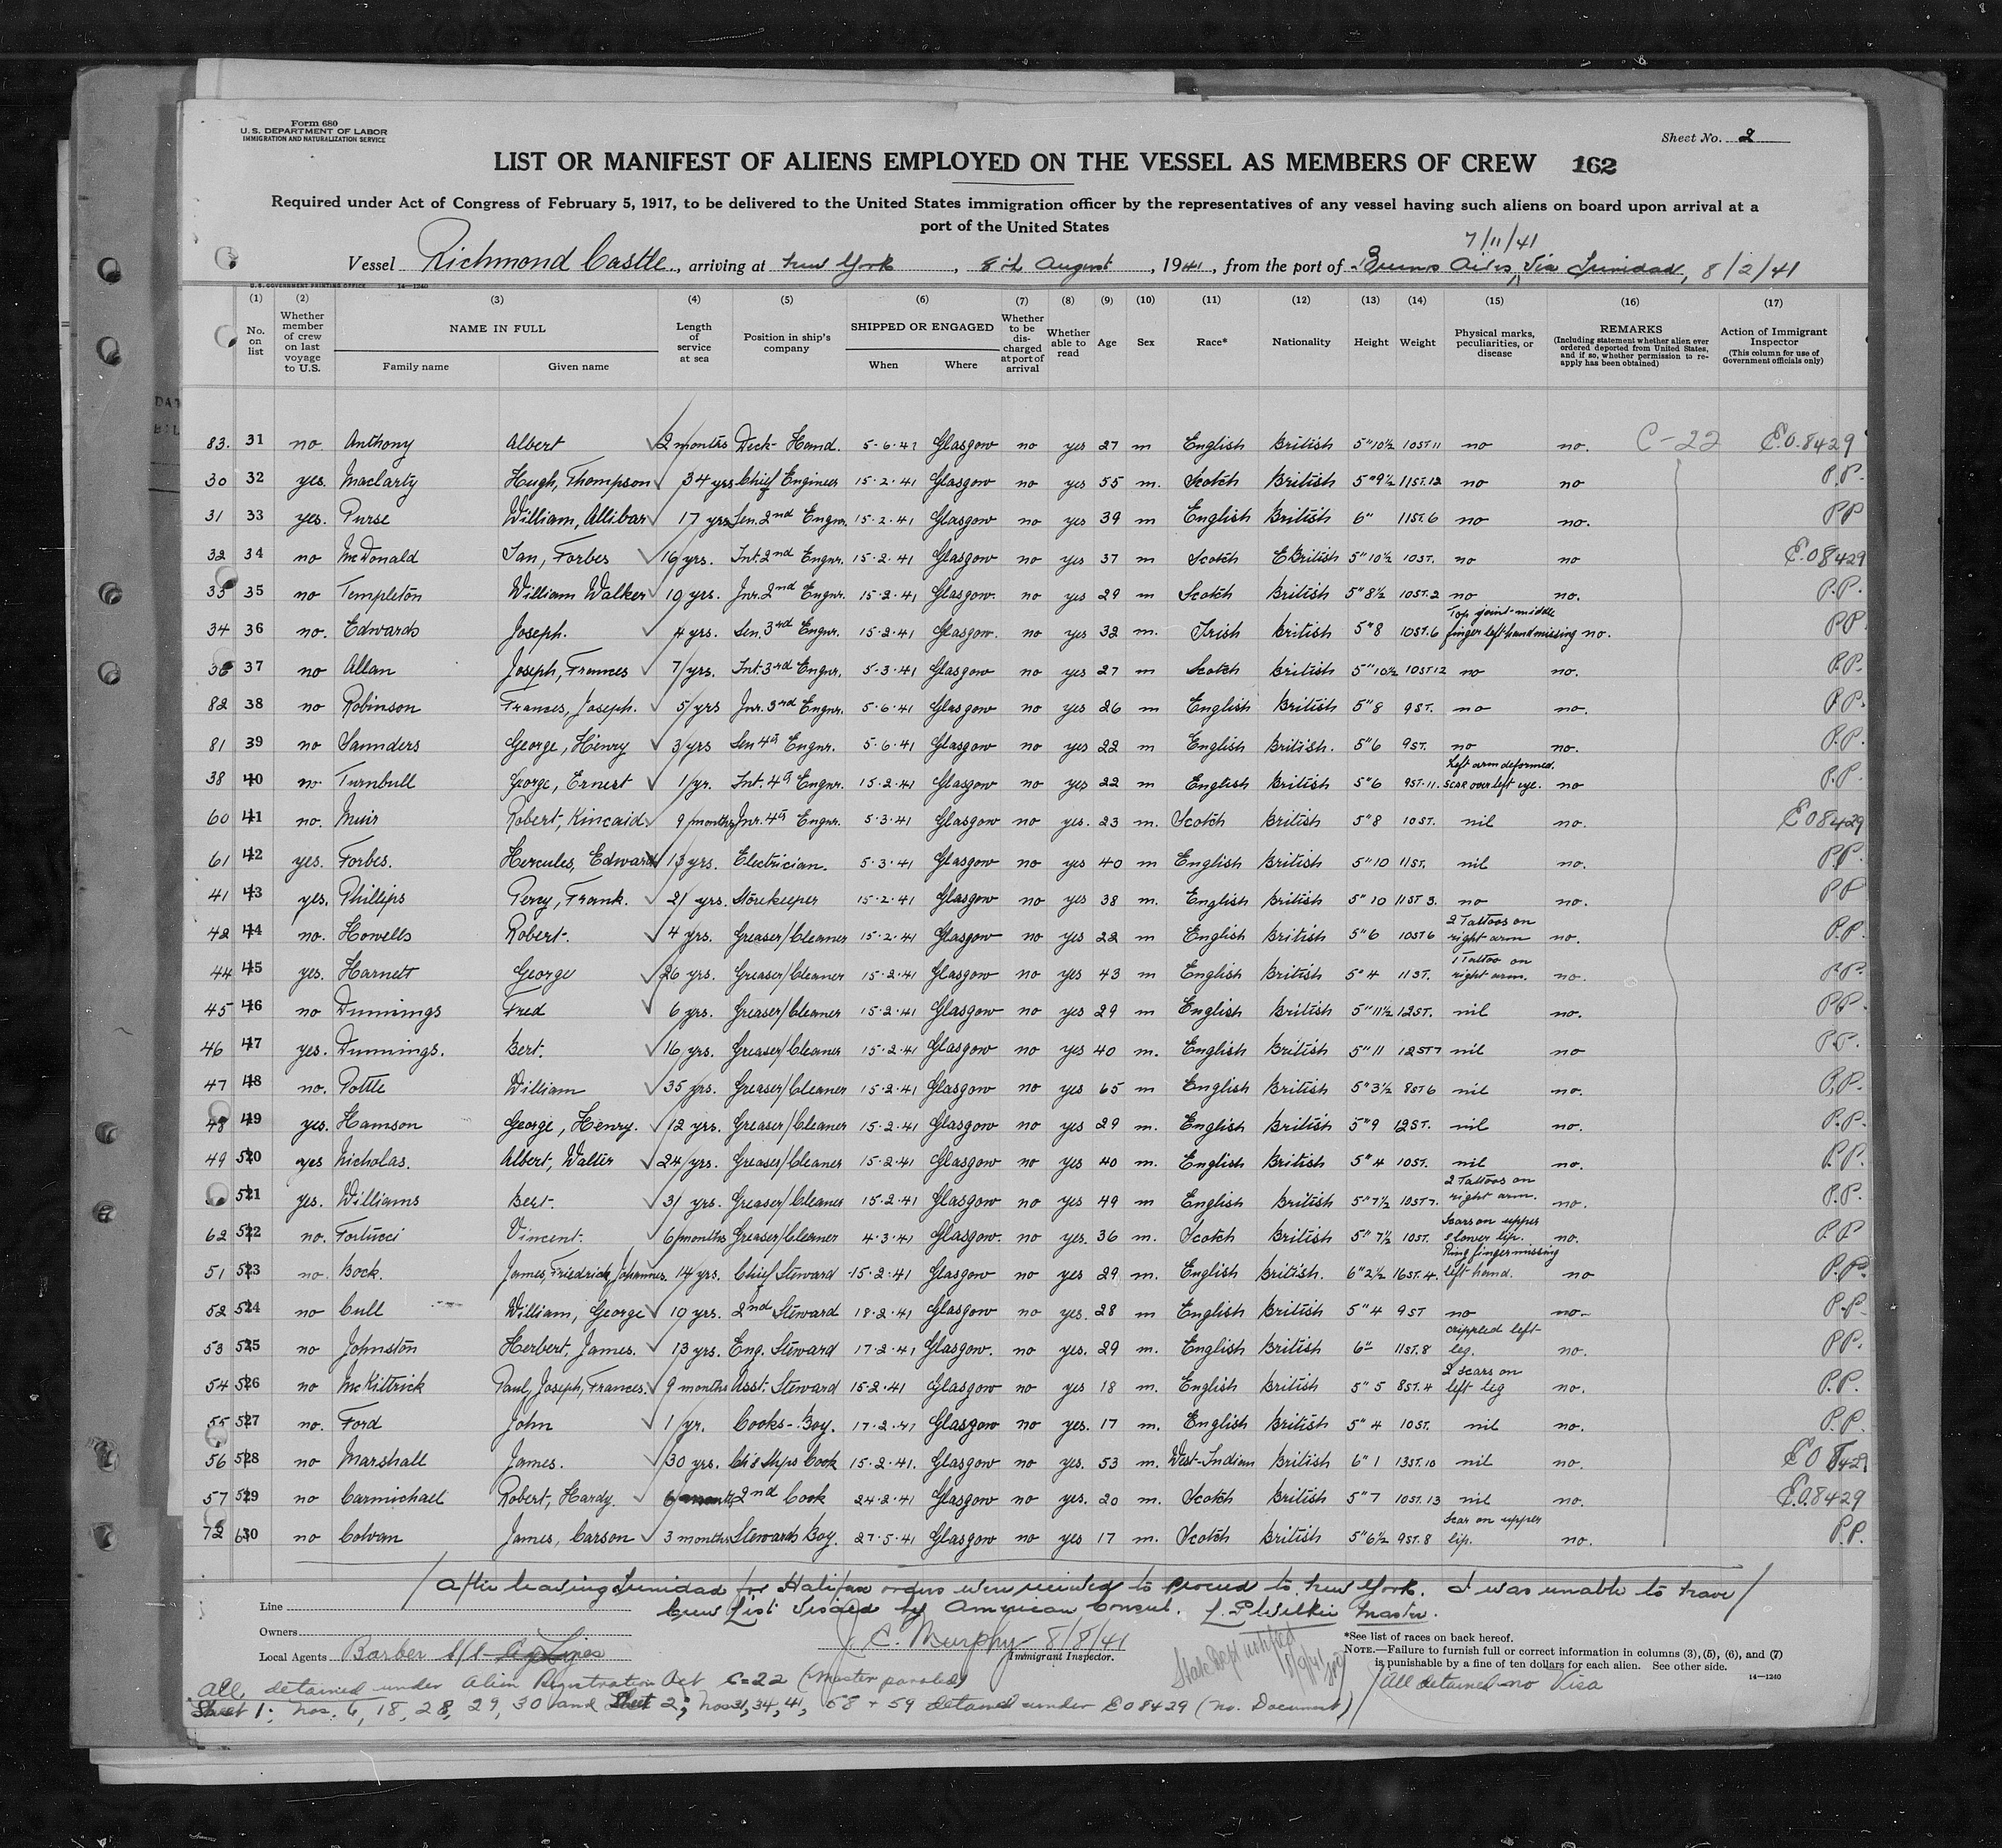 Form 680
U.S. DEPARTMENT OF LABOR
IMMIGRATION AND NATURALIZATION SERVICE
Sheet No. 2
LIST OR MANIFEST OF ALIENS EMPLOYED ON THE VESSEL AS MEMBERS OF CREW 162
Required under Act of Congress of February 5, 1917, to be delivered to the United States immigration officer by the representatives of any vessel having such aliens on board upon arrival at a
port of the United States
7/11/41
Vessel Richmond Castle, arriving at New York, 8th August, 1941, from the port of Buenos Aires, Via Trinidad, 8/2/41
U.S. GOVERNMENT PRINTING OFFICE 14—1240
(1) (2) (3) (4) (5) (6) (7) (8) (9) (10) (11) (12) (13) (14) (15) (16) (17)
No. on list
Whether member of crew on last voyage to U.S.
NAME IN FULL
Family name
Given name
Length of service at sea
Position in ship's company
SHIPPED OR ENGAGED
When
Where
Whether to be discharged at port of arrival
Whether able to read
Age
Sex
Race*
Nationality
Height
Weight
Physical marks, peculiarities, or disease
REMARKS
(Including statement whether alien ever ordered deported from United States, and if so, whether permission to reapply has been obtained)
Action of Immigrant Inspector
(This column for use of Government officials only)
83. 31 no. Anthony Albert 2 months Deck-Hand. 5-6-41 Glasgow no yes 27 m English British 5"10½ 10ST11 no no. C-22 E.O.8429
30 32 yes. Maclarty Hugh, Thompson 34 yrs Chief Engineer 15.2.41 Glasgow no yes 55 m. Scotch British 5"9½ 11ST.12 no no P.P.
31 33 yes. Purse William, Allibar 17 yrs Sen. 2nd Engnr. 15.2.41 Glasgow no yes 39 m English British 6" 11ST.6 no no. PP
32 34 no McDonald Ian, Forbes 16 yrs. Int. 2nd Engnr. 15.2.41 Glasgow no yes 37 m Scotch EBritish 5"10½ 10ST. no no E.O8429
33 35 no Templeton William Walker 10 yrs. Jnr. 2nd Engnr. 15.2.41 Glasgow. no yes 29 m Scotch British 5"8½ 10ST.2 no no. P.P.
34 36 no. Edwards Joseph. 4 yrs. Sen. 3rd Engnr. 15.2.41 Glasgow. no yes 32 m. Irish British 5"8 10ST.6 Top joint-middle finger left hand missing no. PP
36 37 no Allan Joseph, Frances 7 yrs. Int. 3rd Engnr. 5.3.41 Glasgow no yes 27 m Scotch British 5"10½ 10ST12 no no. P.P.
82 38 no Robinson Frances, Joseph. 5 yrs Jnr. 3rd Engnr. 5.6.41 Glasgow no yes 26 m English British 5"8 9ST. no no. P.P.
81 39 no Saunders George, Henry 3 yrs Sen 4th Engnr. 5.6.41 Glasgow no yes 22 m English British. 5"6 9ST. no no. P.P.
38 40 no Turnbull George, Ernest 1 yr. Int. 4th Engnr. 15.2.41 Glasgow no yes 22 m English British 5"6 9ST.11. Left arm deformed. scar over left eye. no P.P.
60 41 no. Muir Robert, Kincaid 9 months Jnr. 4th Engnr. 5.3.41 Glasgow no yes. 23 m. Scotch British 5"8 10ST. nil no. E08429
61 42 yes. Forbes. Hercules, Edward 13 yrs. Electrician. 5.3.41 Glasgow no yes 40 m English British 5"10 11ST. nil no. P.P.
41 43 yes. Phillips Percy, Frank. 21 yrs. Storekeeper 15.2.41 Glasgow no yes 38 m. English British 5"10 11ST3. no no. PP
42 44 no. Howells Robert. 4 yrs. Greaser/Cleaner 15.2.41 Glasgow no yes 22 m English British 5"6 10ST6 2 Tattoos on right arm no. P.P.
44 45 yes. Harnett George 26 yrs. Greaser/Cleaner 15.2.41 Glasgow no yes 43 m English British 5"4 11ST. 1 Tattoo on right arm. no. P.P.
45 46 no Dunnings Fred 6 yrs. Greaser/Cleaner 15.2.41 Glasgow no yes 29 m English British 5"11½ 12ST. nil no. PP.
46 47 yes. Dunnings. Bert. 16 yrs. Greaser/Cleaner 15.2.41 Glasgow no yes 40 m. English British 5"11 12ST7 nil no P.P.
47 48 no. Pottle William 35 yrs. Greaser/Cleaner 15.2.41 Glasgow no yes 65 m English British 5"3½ 8ST6 nil no. P.P.
48 49 yes. Hamson George, Henry. 12 yrs. Greaser/Cleaner 15.2.41 Glasgow no yes 29 m. English British 5"9 12ST. nil no. P.P.
49 50 yes Nicholas. Albert, Walter 24 yrs. Greaser/Cleaner 15.2.41 Glasgow no yes 40 m. English British 5"4 10ST. nil no. P.P.
51 yes. Williams Bert. 31 yrs. Greaser/Cleaner 15.2.41 Glasgow no yes 49 m English British 5"7½ 10ST7. 2 Tattoos on right arm. no. P.P.
62 52 no. Fortucci Vincent. 6 months Greaser/Cleaner 4.3.41 Glasgow. no yes. 36 m. Scotch British 5"7½ 10ST. Scars on upper & lower lip. no. P.P
51 53 no. Bock. James, Friedrich, Johannes. 14 yrs. Chief Steward 15.2.41 Glasgow no yes 29 m. English British. 6"2½ 16ST.4. Ring finger missing left hand. no P.P.
52 54 no Cull William, George 10 yrs. 2nd Steward 18.2.41 Glasgow no yes. 28 m English British 5"4 9ST no no- P.P.
53 55 no Johnston Herbert, James. 13 yrs. Eng. Steward 17.2.41 Glasgow. no yes. 29 m. English British 6" 11ST.8 crippled left leg. no. PP.
54 56 no McKittrick Paul, Joseph, Frances. 9 months Asst. Steward 15.2.41 Glasgow no yes 18 m. English British 5"5 8ST.4 2 scars on left leg no. P.P.
55 57 no. Ford John 1 yr. Cooks-Boy. 17.2.41 Glasgow no yes. 17 m. English British 5"4 10ST. nil no. P.P.
56 58 no Marshall James. 30 yrs. Ch's Shps Cook 15.2.41. Glasgow no yes. 53 m. West-Indian British 6"1 13ST.10 nil no. EO 8429
57 59 no Carmichael Robert, Hardy. 6 months 2nd Cook 24.2.41 Glasgow no yes. 20 m. Scotch British 5"7 10ST.13 nil no. E.O.8429
72 60 no Colvan James, Carson 3 months Stewards Boy. 27.5.41 Glasgow no yes 17 m. Scotch British 5"6½ 9ST.8 Scar on upper lip. no. P.P.
/After leaving Trinidad for Halifax orders were received to proceed to New York. I was unable to have/
Crew List Visaed by American Consul. L. P Wilkie Master.
Line
Owners
J. C. Murphy 8/8/41
Immigrant Inspector.
Local Agents Barber S/S Lines
State Dept notified
*See list of races on back hereof.
NOTE.—Failure to furnish full or correct information in columns (3), (5), (6), and (7)
is punishable by a fine of ten dollars for each alien. See other side.
14—1240
All detained no Visa
All detained under Alien Registration Act C-22 (Master paroled)
Sheet 1: Nos. 6, 18, 28, 29, 30 and Sheet 2; Nos 31, 34, 41, 58 + 59 detained under EO8429 (no. Document)